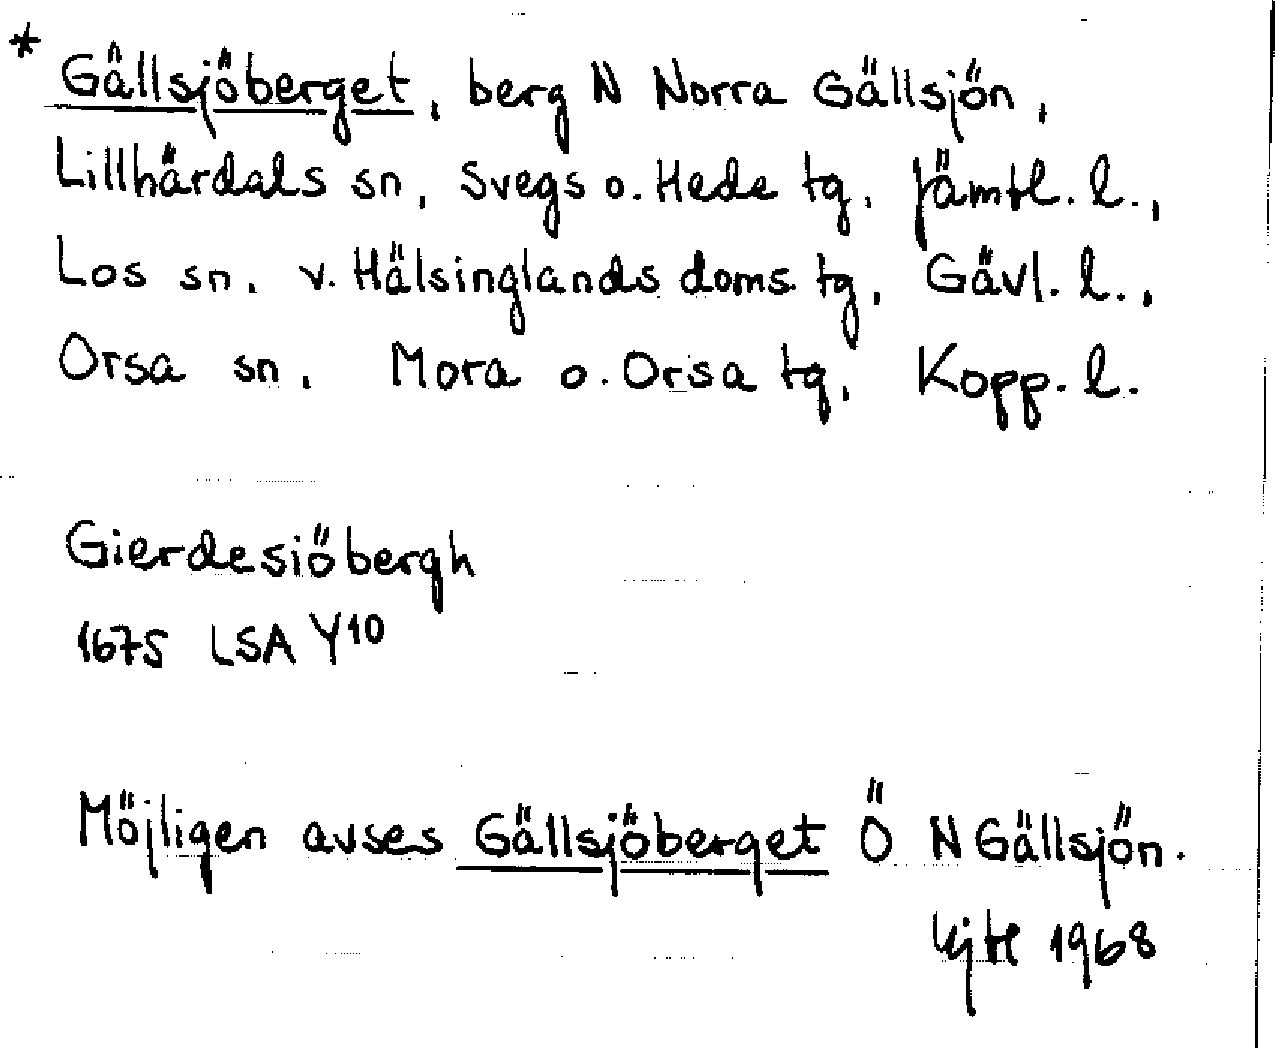 * Gällsjöberget, berg N Norra Gällsjön,
Lillhärdals sn, Svegs o. Hede tg, Jämtl. l.,
Los sn, v. Hälsinglands doms. tg, Gävl. l.,
Orsa sn, Mora o. Orsa tg, Kopp. l.
Gierdesiöbergh
1675 LSA Y10
Möjligen avses Gällsjöberget Ö N Gällsjön.
1968